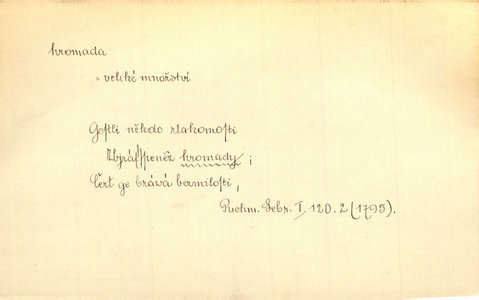 hromada
= veliké množství
Gestli někdo z lakomosti
Zbjrá peněz hromady;
Čert ge bráwá bez milosti,
Puchm. Sebr. I. 120. 2 (1795).